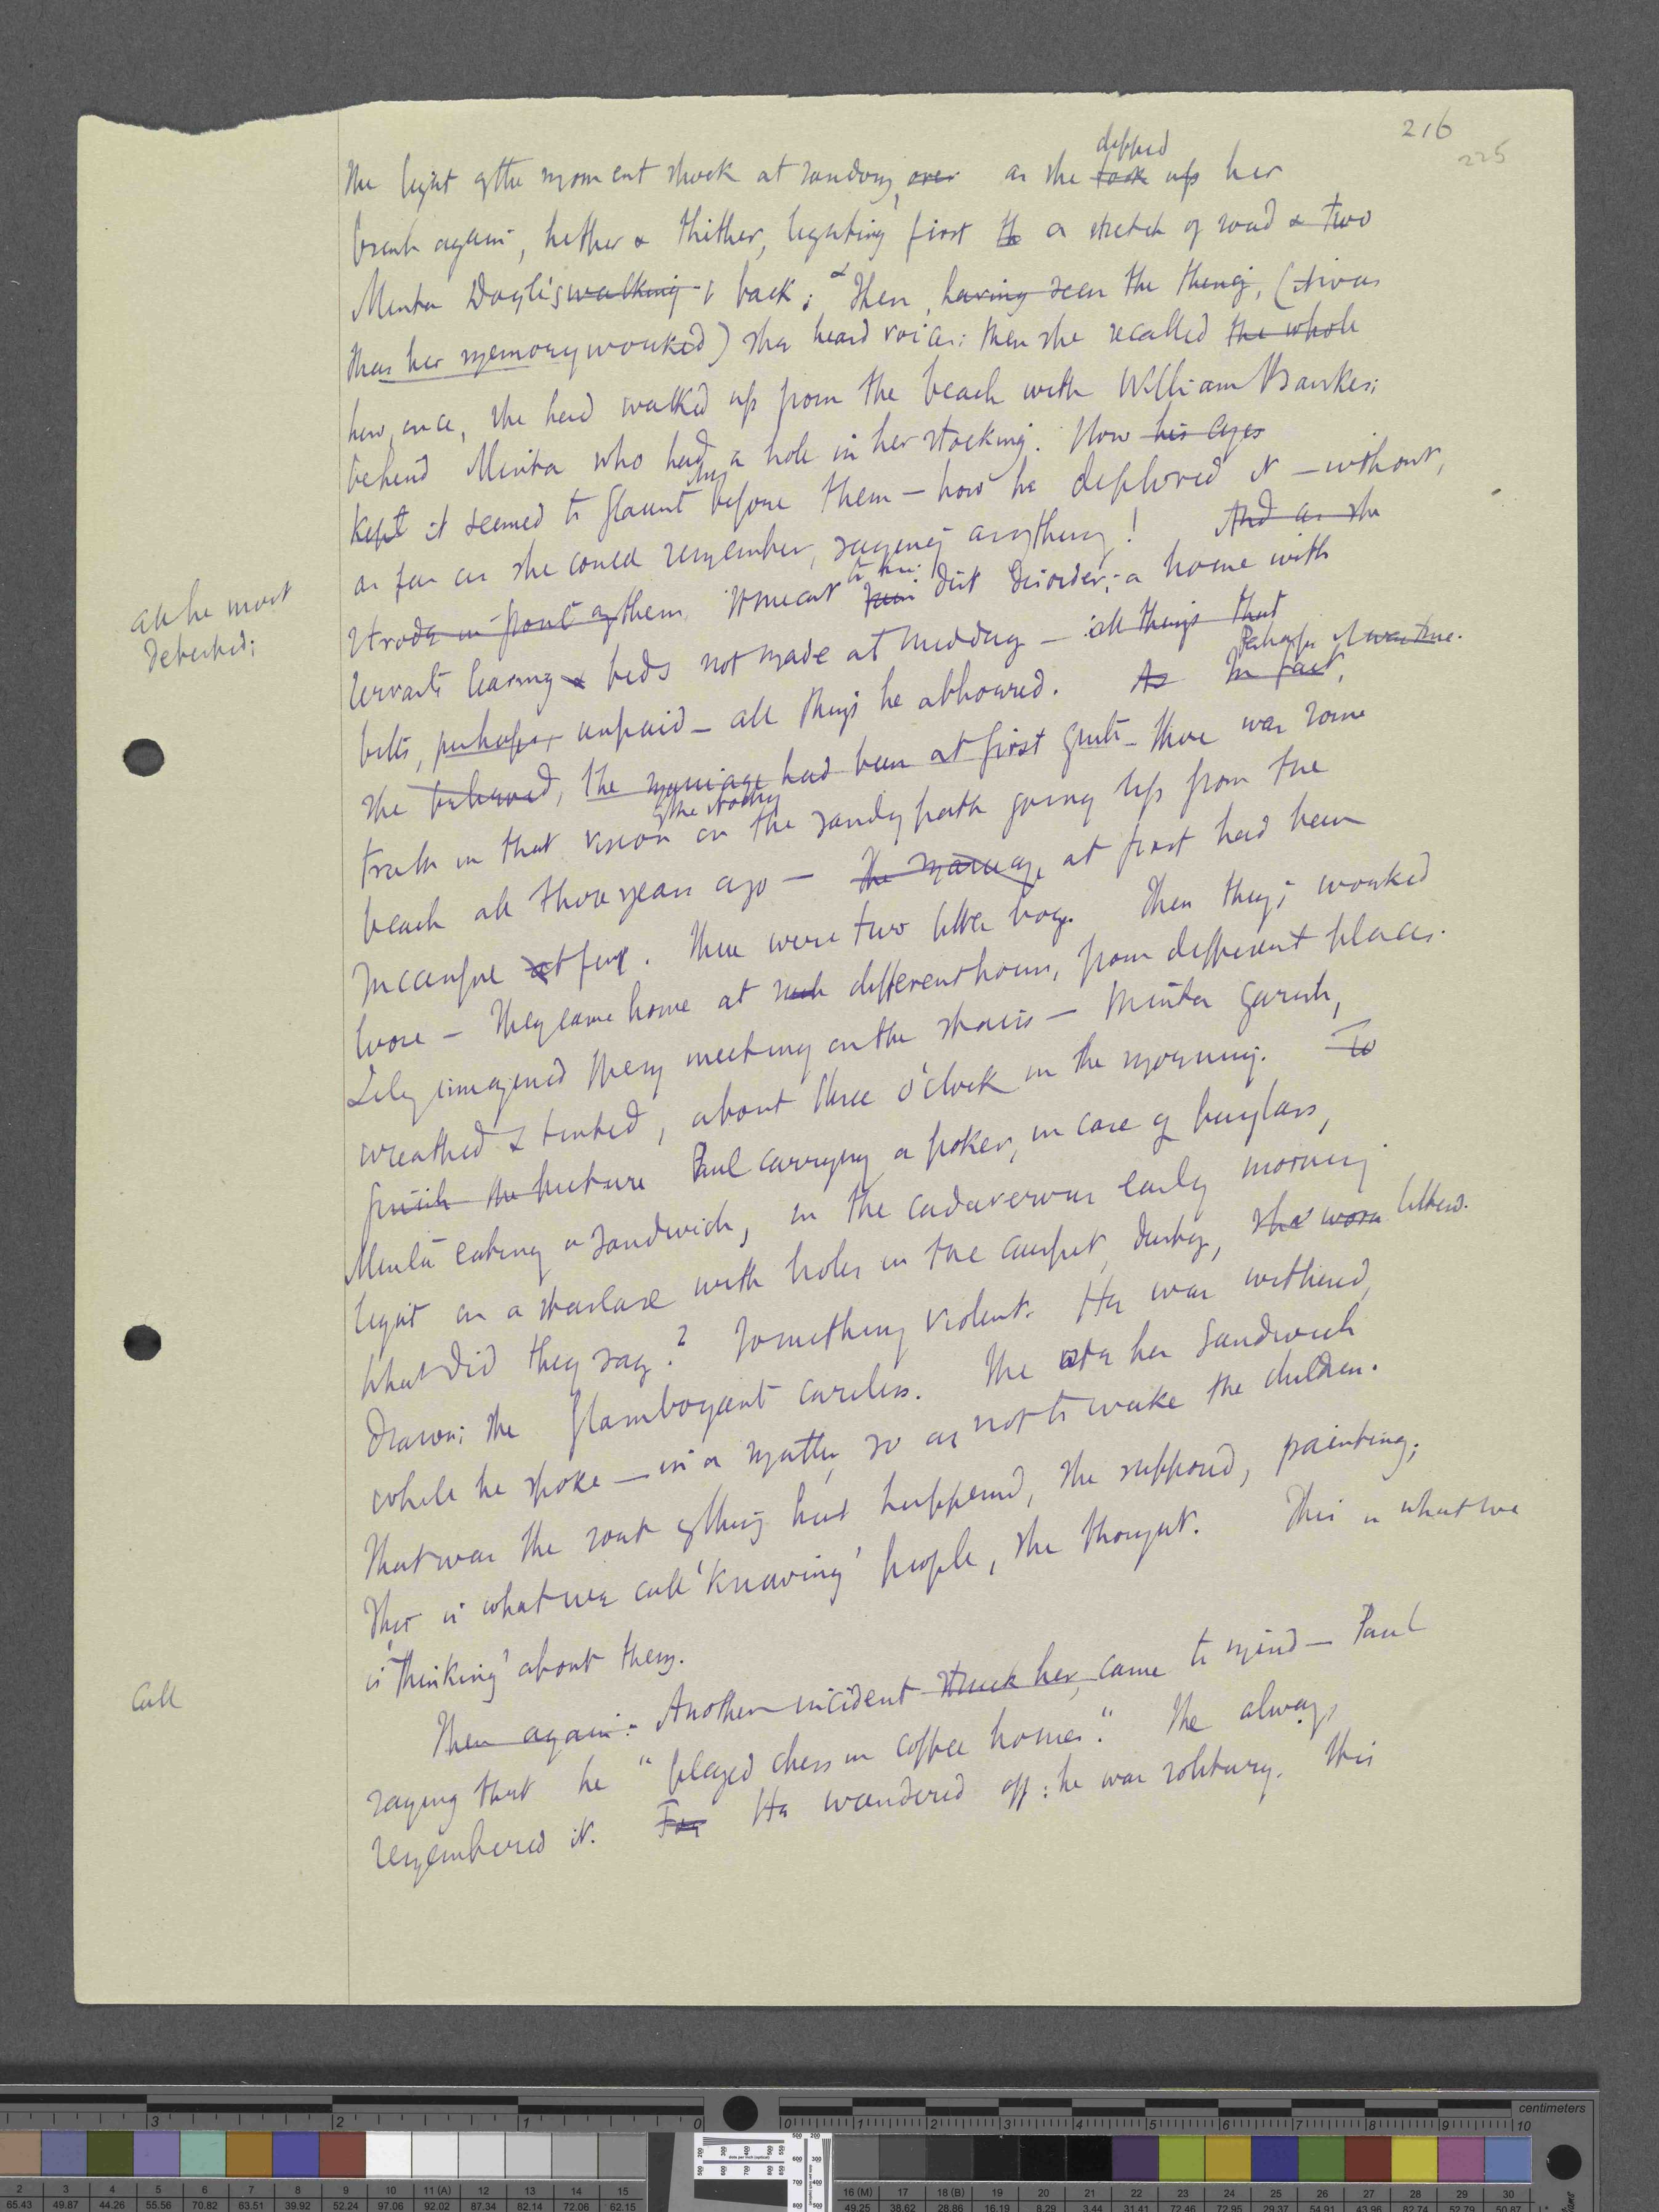 216
225
The light of the moment struck at random, over as she took up dipped her
brush again, hither & thither, lighting first th a stretch of road & two
Minta Doyle's walking back; & Then, having seen the thing, (it was
thus her memory worked) she heard voices: then she recalled the whole
how, once, she had walked up from the beach with William Bankes:
behind Minta who had a hole in her stocking. How his eyes
kept it seemed to flaunt before them — how he deplored it — without,
as far as she could remember, saying anything! And as she
strode in front of them. It meant to him dirt disorder; a home with
all he most
detested;
servants leaving & beds not made at midday — all things that
bills, perhaps, unpaid — all things he abhorred. As In fact, Perhaps it was true.
she believed, the marriage had been at first quite — there was some
truth in that vision of the stocking on the sandy path going up from the
beach all those years ago — the marriage, at first had been
at first. There were two little boys. Then things worked
loose — They came home at such different hours, from different places.
Lily imagined them meeting on the stairs — Minta garish,
wreathed & tinted, about three o'clock in the morning. To
finish the picture Paul carrying a poker, in case of burglars,
Minta eating a sandwich, in the cadaverous early morning
light on a staircase with holes in the carpet, dusty, she wore littered.
What did they say? Something violent. He was withered,
drawn; she flamboyant careless. She ate her sandwich
while he spoke — in a mutter, so as not to wake the children.
That was the sort of thing that happened, she supposed, painting;
This is what we call 'knowing' people, she thought. This is what we
is 'thinking' about them.
call
Then again: Another incident struck her, came to mind — Paul
saying that he "played chess in coffee houses." She always
remembered it. For He wandered off: he was solitary. This
centimeters